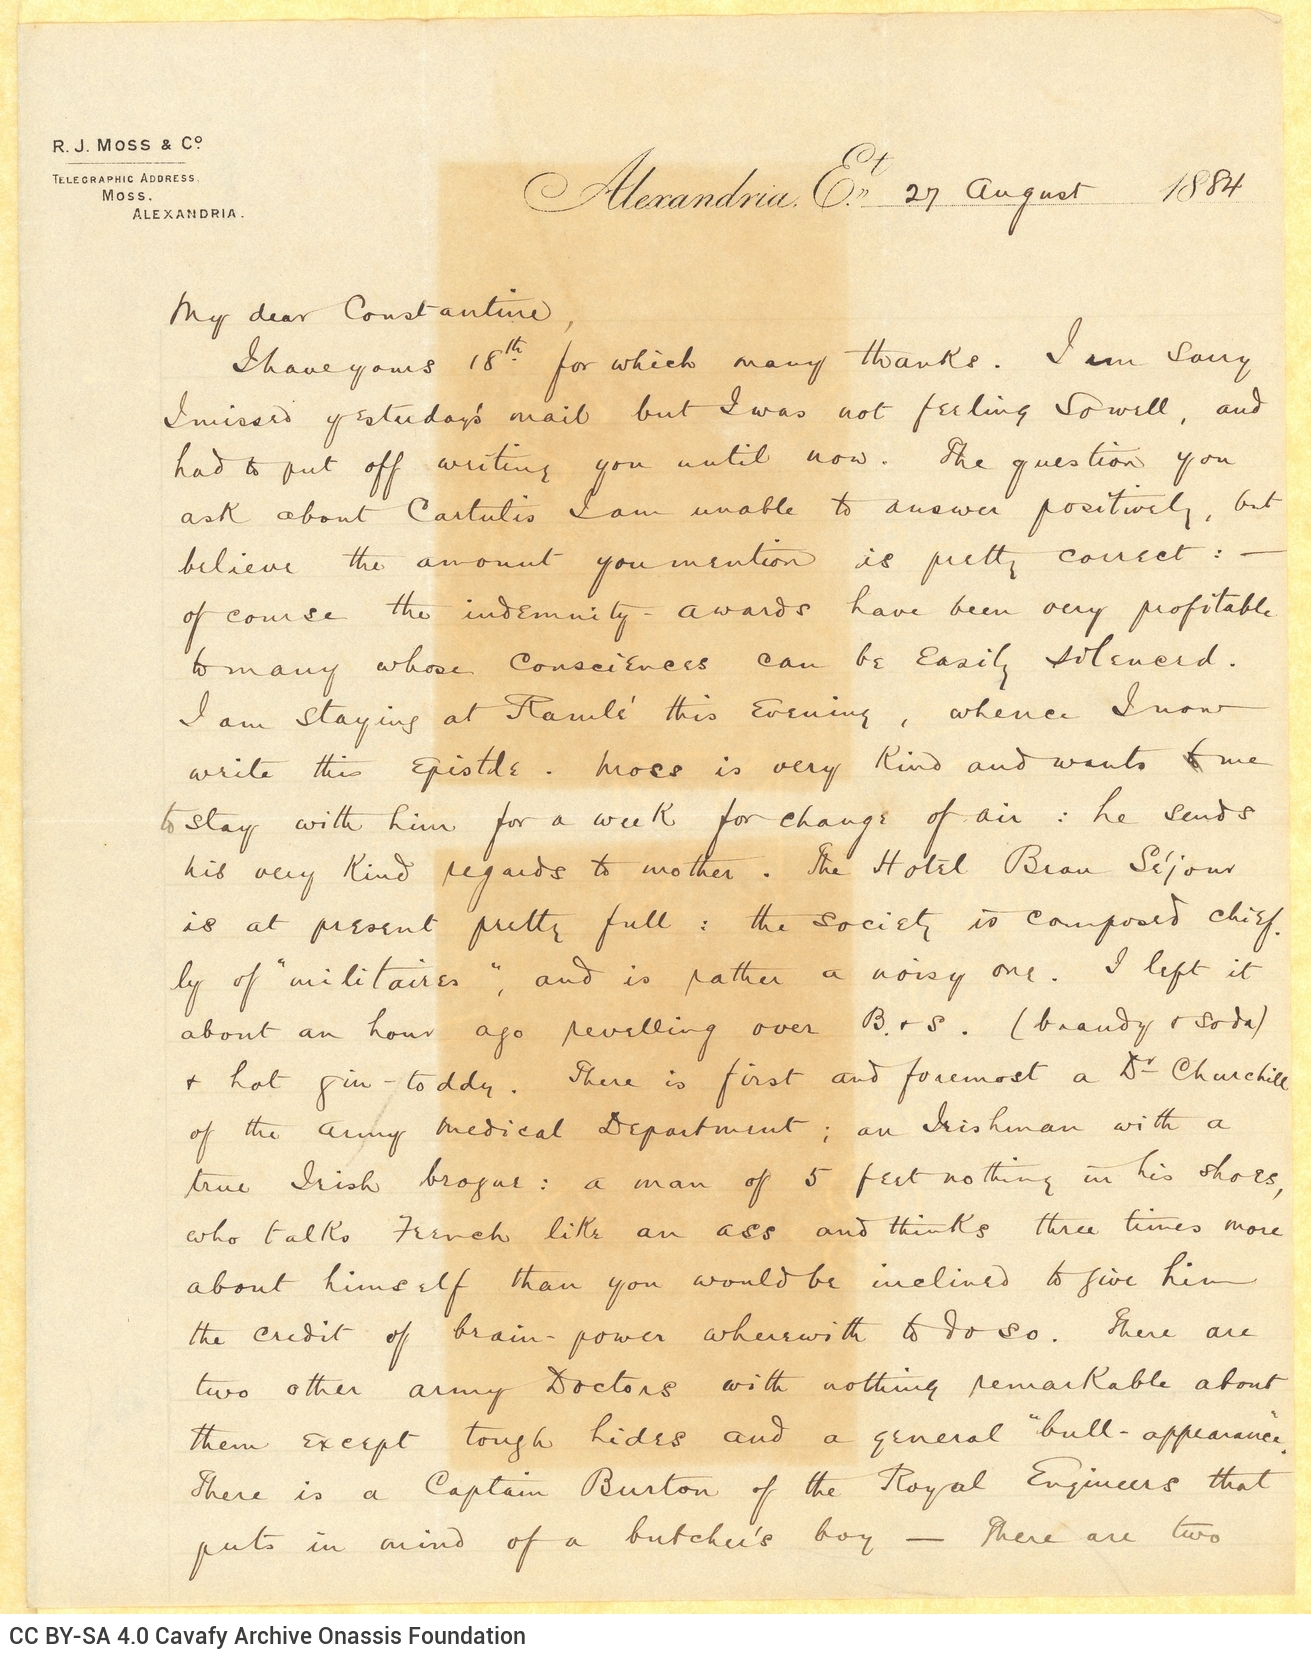 R. J. Moss & Cº
Telegraphic Address.
Moss.
Alexandria.
Alexandria. Et. 27 August 1884
My dear Constantine,
I have yours 18th for which many thanks. I am sorry
I missed yesterday's mail but I was not feeling so well, and
had to put off writing you until now. The question you
ask about Cartulis I am unable to answer positively, but
believe the amount you mention is pretty correct : —
of course the indemnity - awards have been very profitable
to many whose consciences can be easily silenced.
I am staying at Ramlé this evening, whence I now
write this epistle. Moss is very kind and wants me
to stay with him for a week for change of air : he sends
his very kind regards to mother. The Hotel Beau Séjour
is at present pretty full : the society is composed chief-
ly of "militaires", and is rather a noisy one. I left it
about an hour ago revelling over B. & S. (brandy & soda)
& hot gin-toddy. There is first and foremost a Dr Churchill
of the Army Medical Department ; an Irishman with a
true Irish brogue : a man of 5 feet nothing in his shoes,
who talks French like an ass and thinks three times more
about himself than you would be inclined to give him
the credit of brain-power wherewith to do so. There are
two other army Doctors with nothing remarkable about
them except tough hides and a general "bull-appearance".
There is a Captain Burton of the Royal Engineers that
puts in mind of a butcher's boy — There are two
CC BY-SA 4.0 Cavafy Archive Onassis Foundation